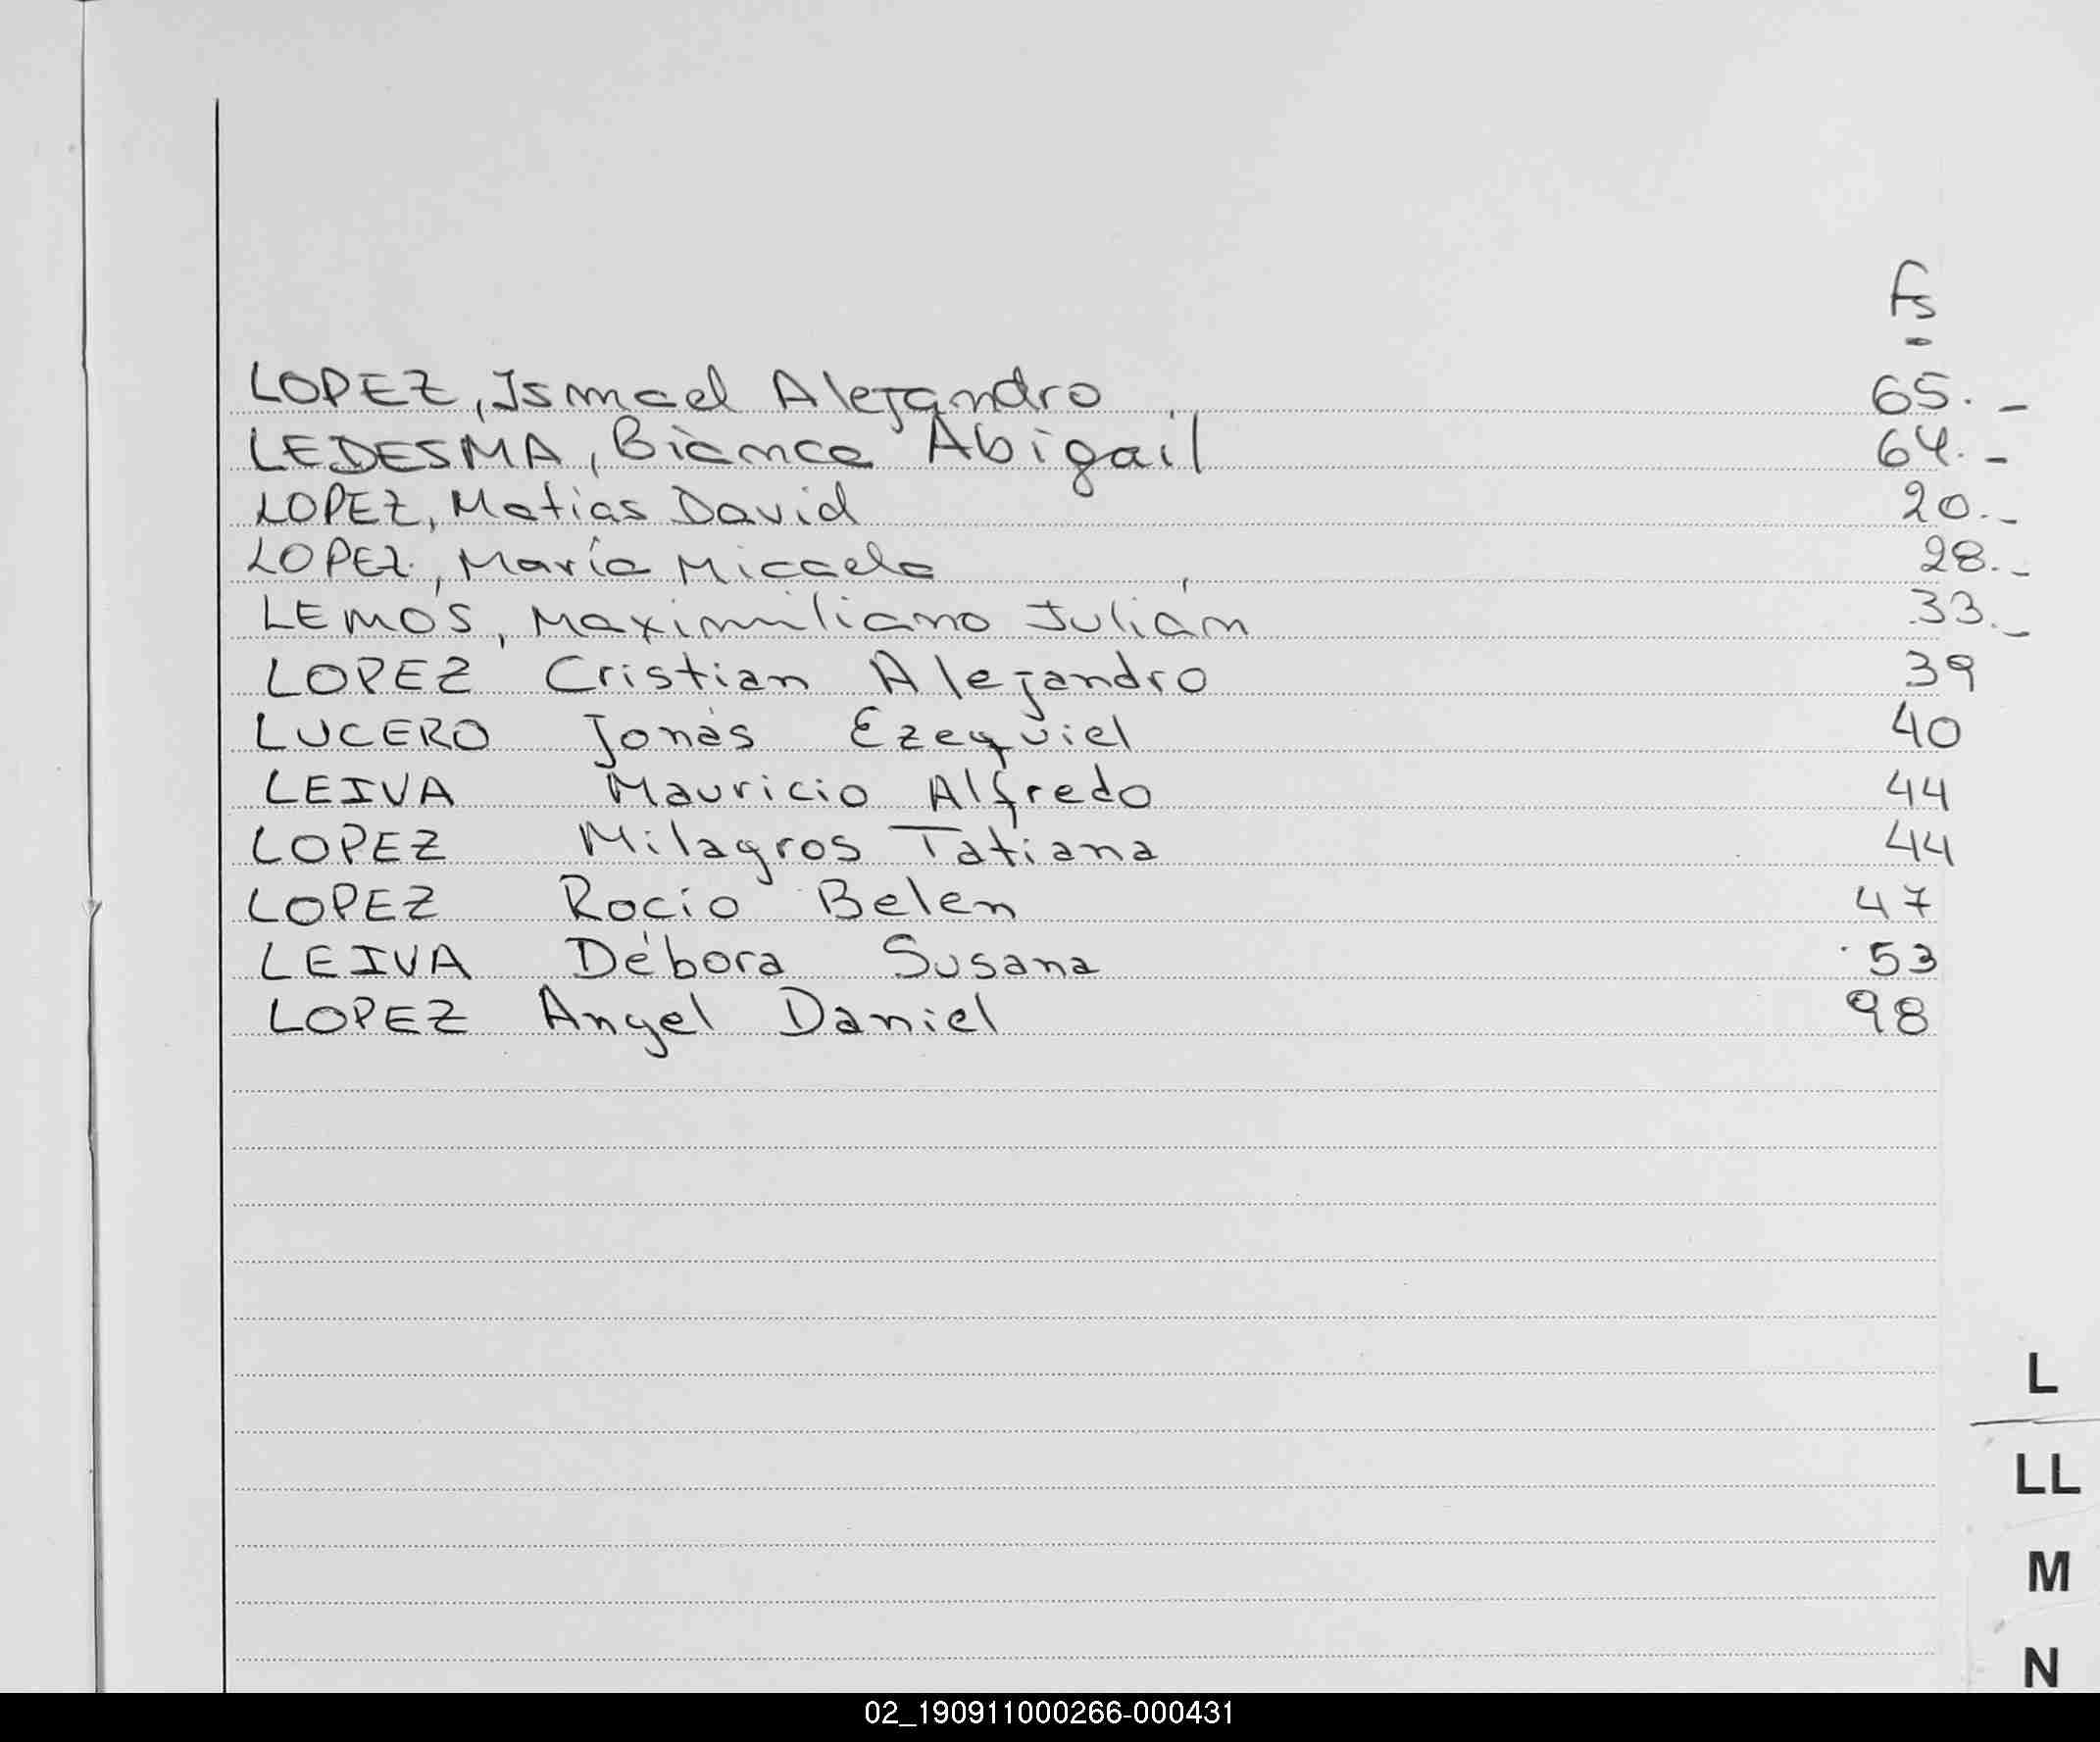 Fs
LOPEZ, Ismael Alejandro 65.-
LEDESMA, Bianca Abigail 64.-
LOPEZ, Matias David 20.-
LOPEZ, María Micaela 28.-
LEMOS, Maximiliano Julián 33.-
LOPEZ Cristian Alejandro 39
LUCERO Jonás Ezequiel 40
LEIVA Mauricio Alfredo 44
LOPEZ Milagros Tatiana 44
LOPEZ Rocio Belen 47
LEIVA Débora Susana 53
LOPEZ Angel Daniel 98
L
LL
M
N
02_190911000266-000431